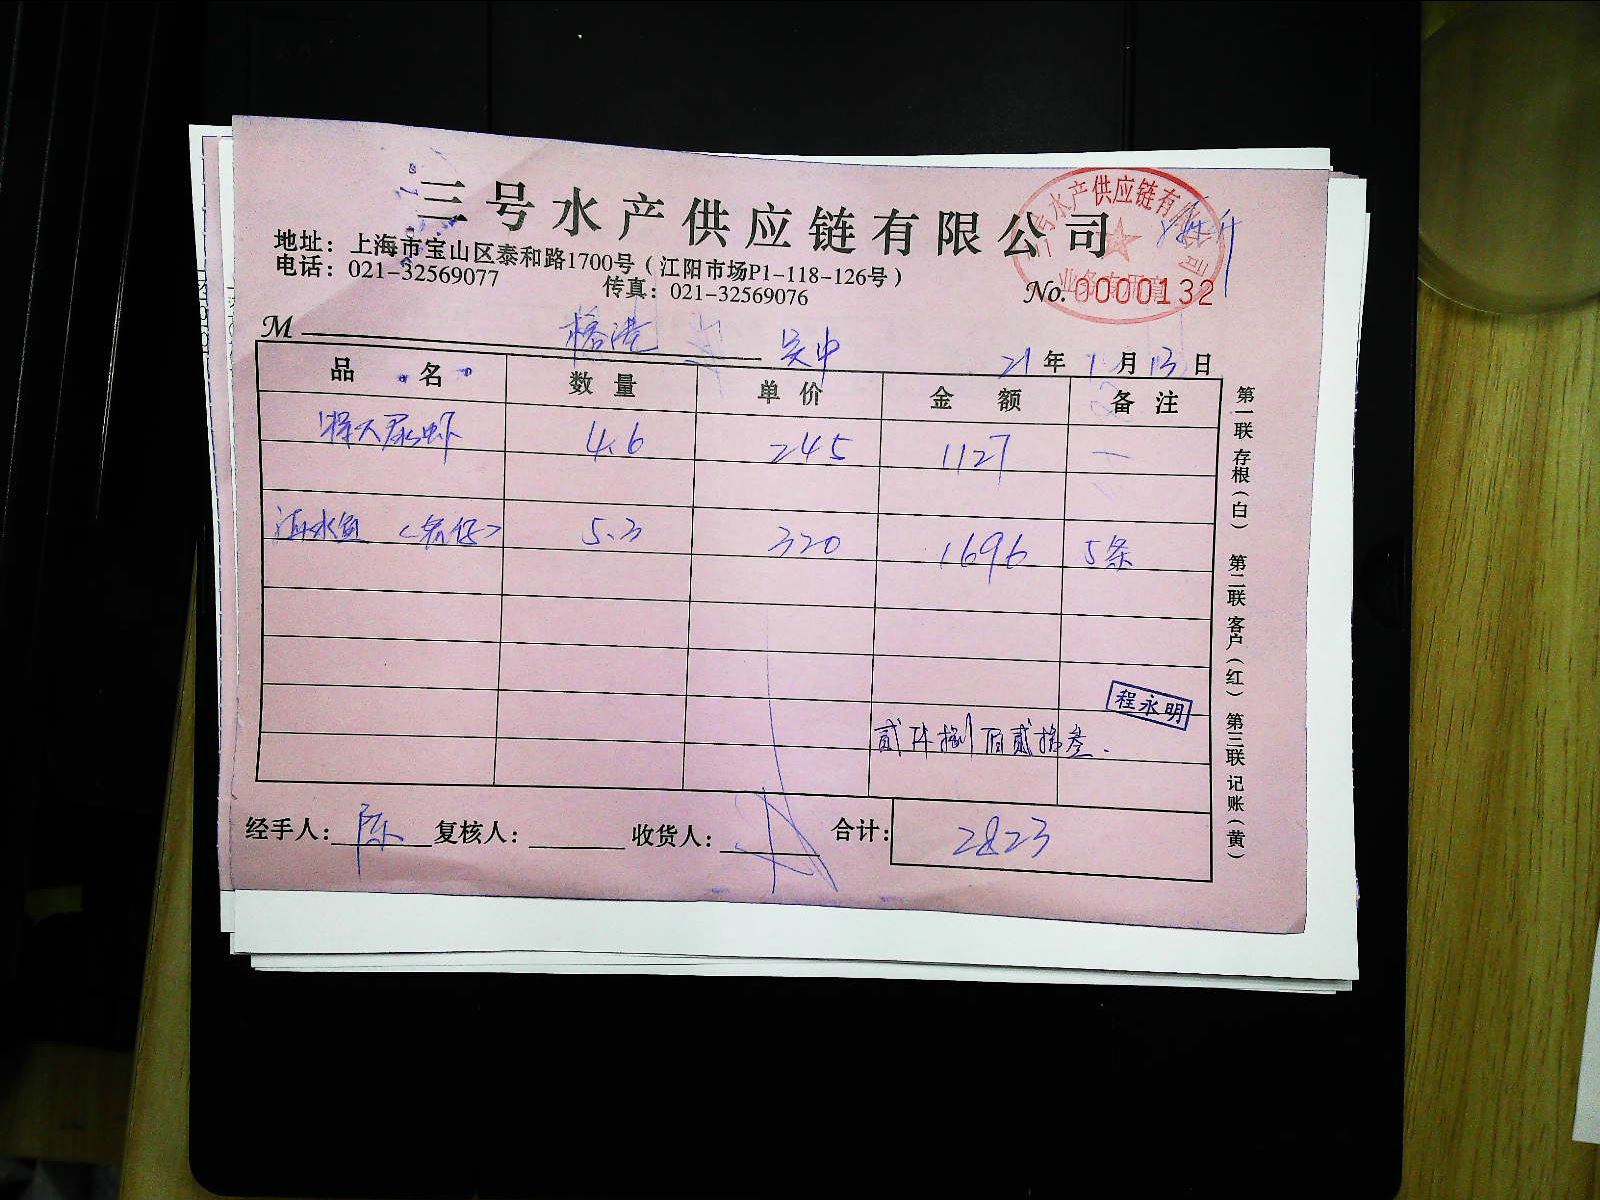 三号水产供应链有限公司
地址：上海市宝山区泰和路1700号（江阳市场P1-118-126号）
电话：021-32569077 传真：021-32569076
水产供应链有
业务专用章
No.0000132
M 榕港 吴中 21年1月13日
品名 数量 单价 金额 备注
濑尿虾 4.6 245 1127 一
5.3 320 1696 5条
程永明
贰仟捌佰贰拾叁.
经手人：陈 复核人： 收货人： 合计：2823
第一联 存根（白） 第二联 客户（红） 第三联 记账（黄）